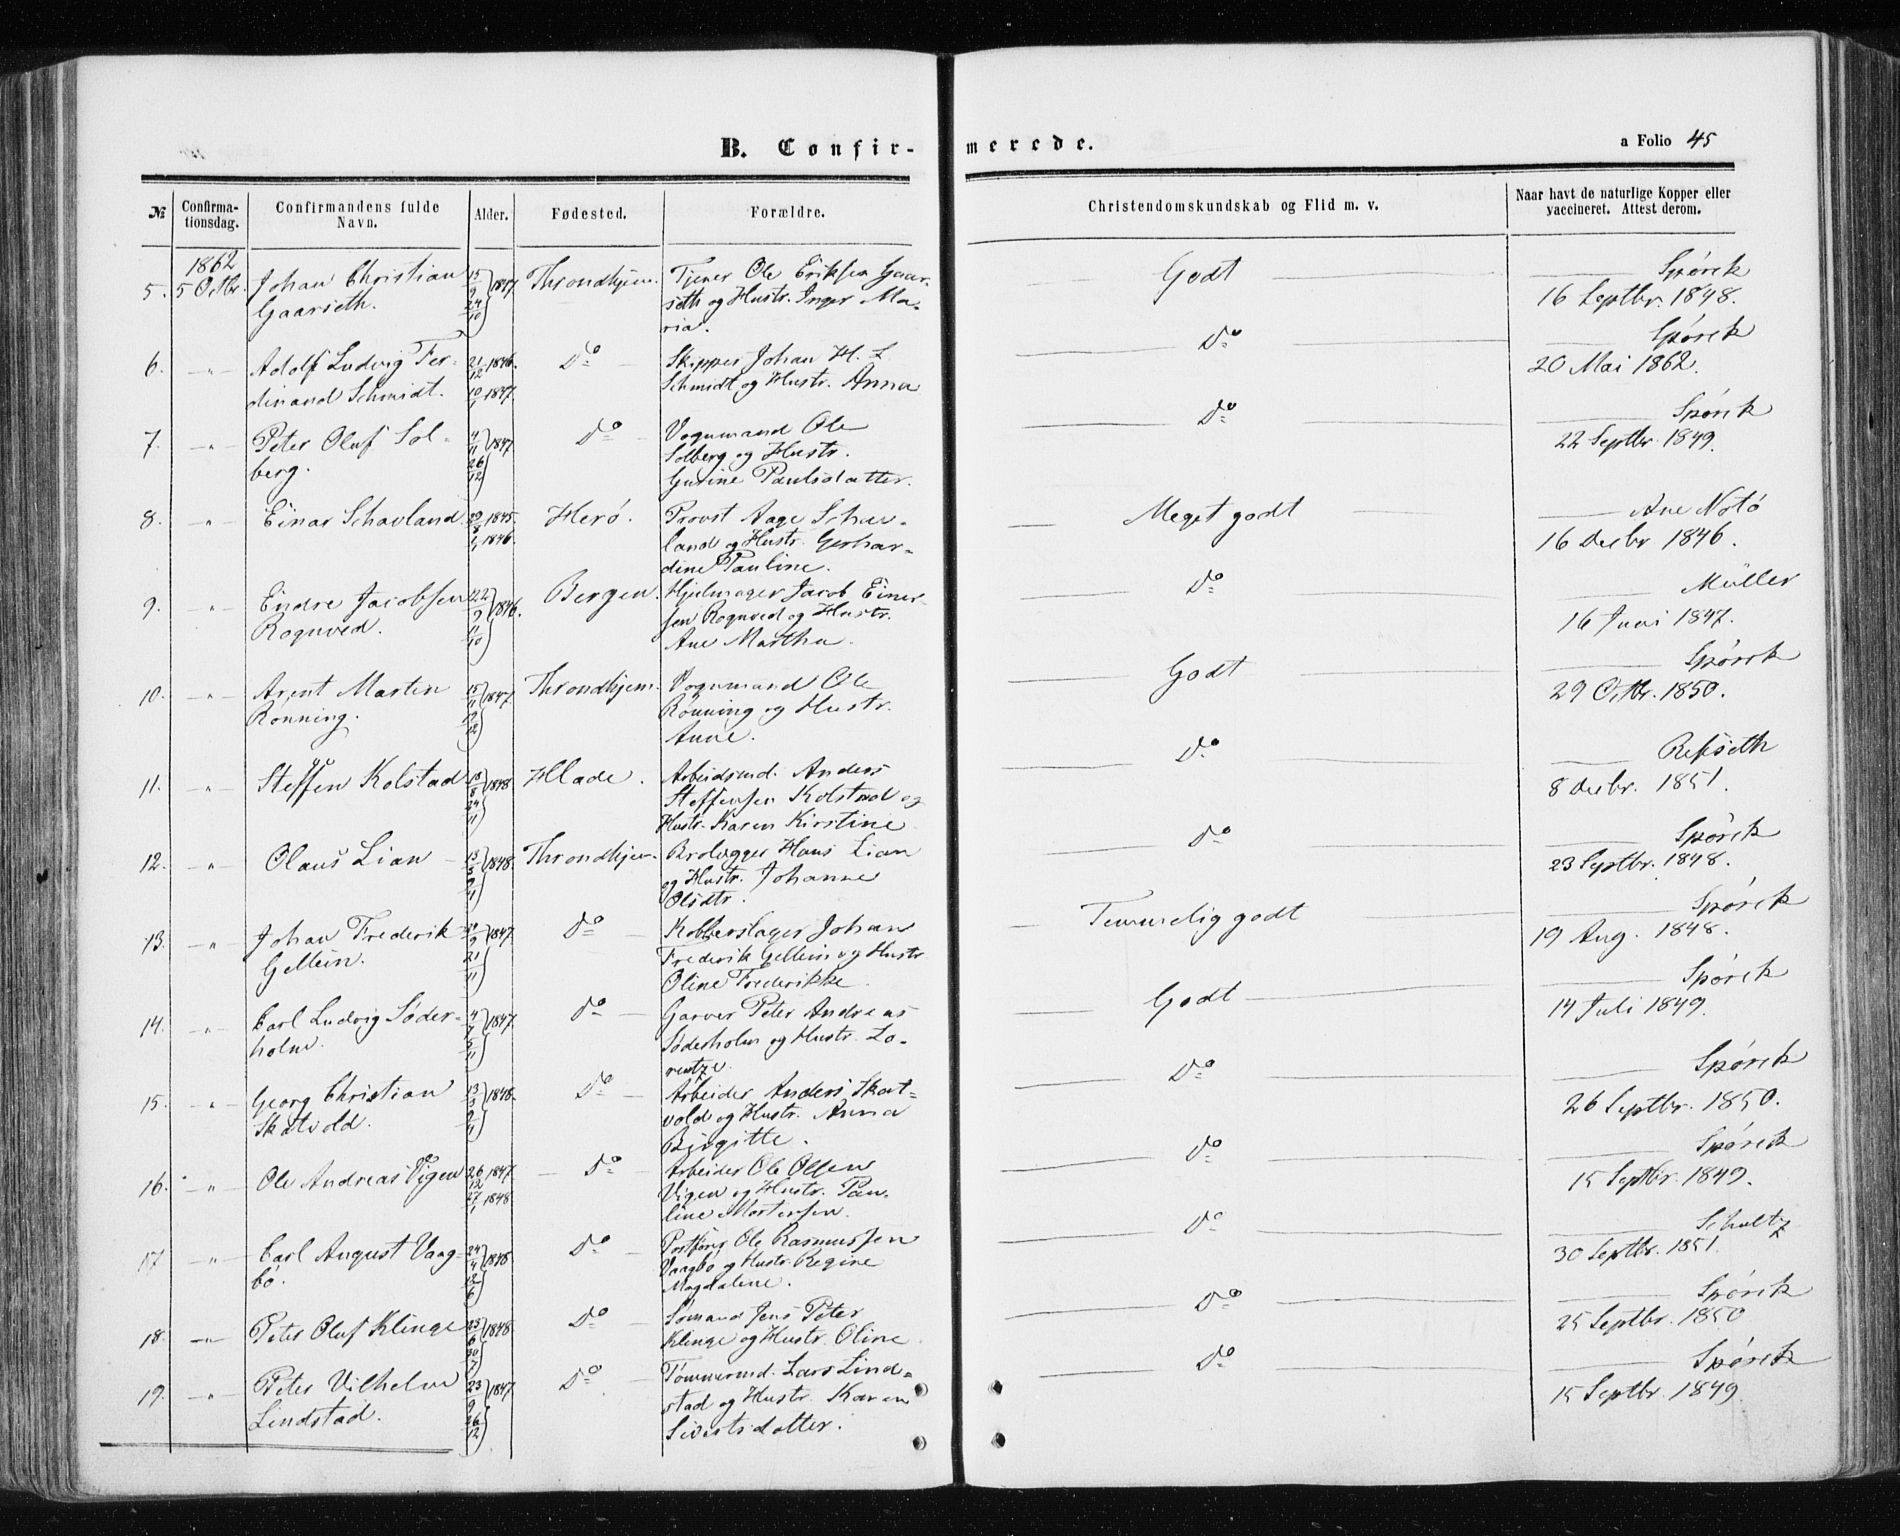 B. Confir-
merede.
a Folio 45
№ Confirma-tionsdag. Confirmandens fulde Navn. Alder. Fødested. Forældre. Christendomskundskab og Flid m. v. Naar havt de naturlige Kopper eller vaccineret. Attest derom.
1862
5. 5 Octbr. Johan Christian 15/9 1847 Throndhjem. Tjener Ole Eriksen Gaar- Godt Spörck
Gaarseth. 24/10 seth og Hustr. Inger Ma- 16 Septbr. 1848.
ria.
6. -„- Adolf Ludvig Fer- 21/12 1846. Do Skipper Johan H. L. Do Spörck
dinand Schmidt. 10/1 1847. Schmidt og Hustr. Anna 20 Mai 1862.
7. -„- Peter Oluf Sol- 4/11 1847 Do Vognmand Ole Do Spörck
berg. 26/12 Solberg og Hustr. 22 Septbr. 1849.
Gurine Paulsdatter.
8. -„- Einar Schavland 1845. Herö. Provst Aage Schav- Meget godt Ane Notö
1/1 1846. land og Hustr. Gerhar- 16 Decbr 1846.
dine Pauline.
9. -„- Endre Jacobsen 22/9 1846. Bergen. Hjulmager Jacob Einer- Do Müller
Rognved. 11/10 sen Rognved og Hustr. 16 Juni 1847.
Ane Martha.
10. -„- Arent Martin 15/11 1847 Throndhjem. Vognmand Ole Godt Spörck
Rönning. 19/12 Rönning og Hustr. 29 Octbr. 1850.
Anne.
11. -„- Steffen Kolstad 1848 Hlade. Arbeidsmd. Anders Do Refseth
24/11 Steffensen Kolstad og 8 Decbr. 1851.
Hustr. Karen Kirstine
12. -„- Olaus Lian 1848. Throndhjem. Brolægger Hans Lian Do Spörck
og Hustr. Johanne 23 Septbr. 1848.
Olsdtr.
13. -„- Johan Frederik 1847. Do Kobberslager Johan Temmelig godt Spörck
Gellein. 21/11 Frederik Gellein og Hustr. 19 Aug. 1848.
Oline Frederikke
14. -„- Carl Ludvig Söder- 1847. Do Garver Peter Andreas Godt Spörck
holm. Söderholm og Hustr. Lo- 14 Juli 1849.
rentze.
15. -„- Georg Christian 13/3 1848. Do Arbeider Anders Skat- Do Spörck
Skatvold. vold og Hustr. Anna 26 Septbr. 1850.
Birgitte.
16. -„- Ole Andreas Vigen 26/12 1847 Do Arbeider Ole Olsen Do Spörck
27/1 1848 Vigen og Hustr. Pau- 15 Septbr. 1849.
line Mortensen.
17 -„- Carl August Vaag- 24/4 1848 Do Postförer Ole Rasmussen Do Schultz
bö. 12/6 Vaagbö og Hustr. Regine 30 Septbr. 1851.
Magdalene.
18. -„- Peter Oluf Klinge 25/6 1848 Do Sömand Jens Peter Do Spörck
30/7 Klinge og Hustr. Oline 25 Septbr. 1850
19. -„- Peter Vilhelm 23/9 1847 Do Tömmermd. Lars Lind- Do Spörck
Lindstad. 26/12 stad og Hustr. Karen 15 Septbr. 1849.
Sivertsdatter.